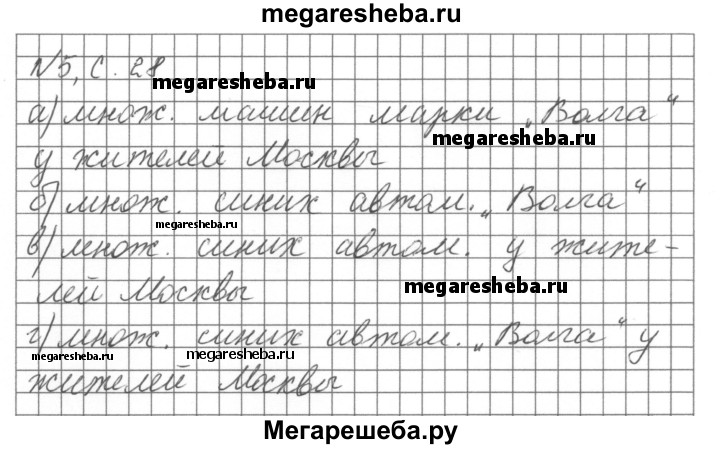 megaresheba.ru
N5, с. 28
megaresheba.ru
а) множ. машин марки „Волга“
megaresheba.ru
у жителей Москвы
б) множ. синих автом. „Волга“
megaresheba.ru
в) множ. синих автом. у жите-
лей Москвы
megaresheba.ru
г) множ. синих автом. „Волга“ у
megaresheba.ru megaresheba.ru
жителей Москвы
Мегарешеба.ру